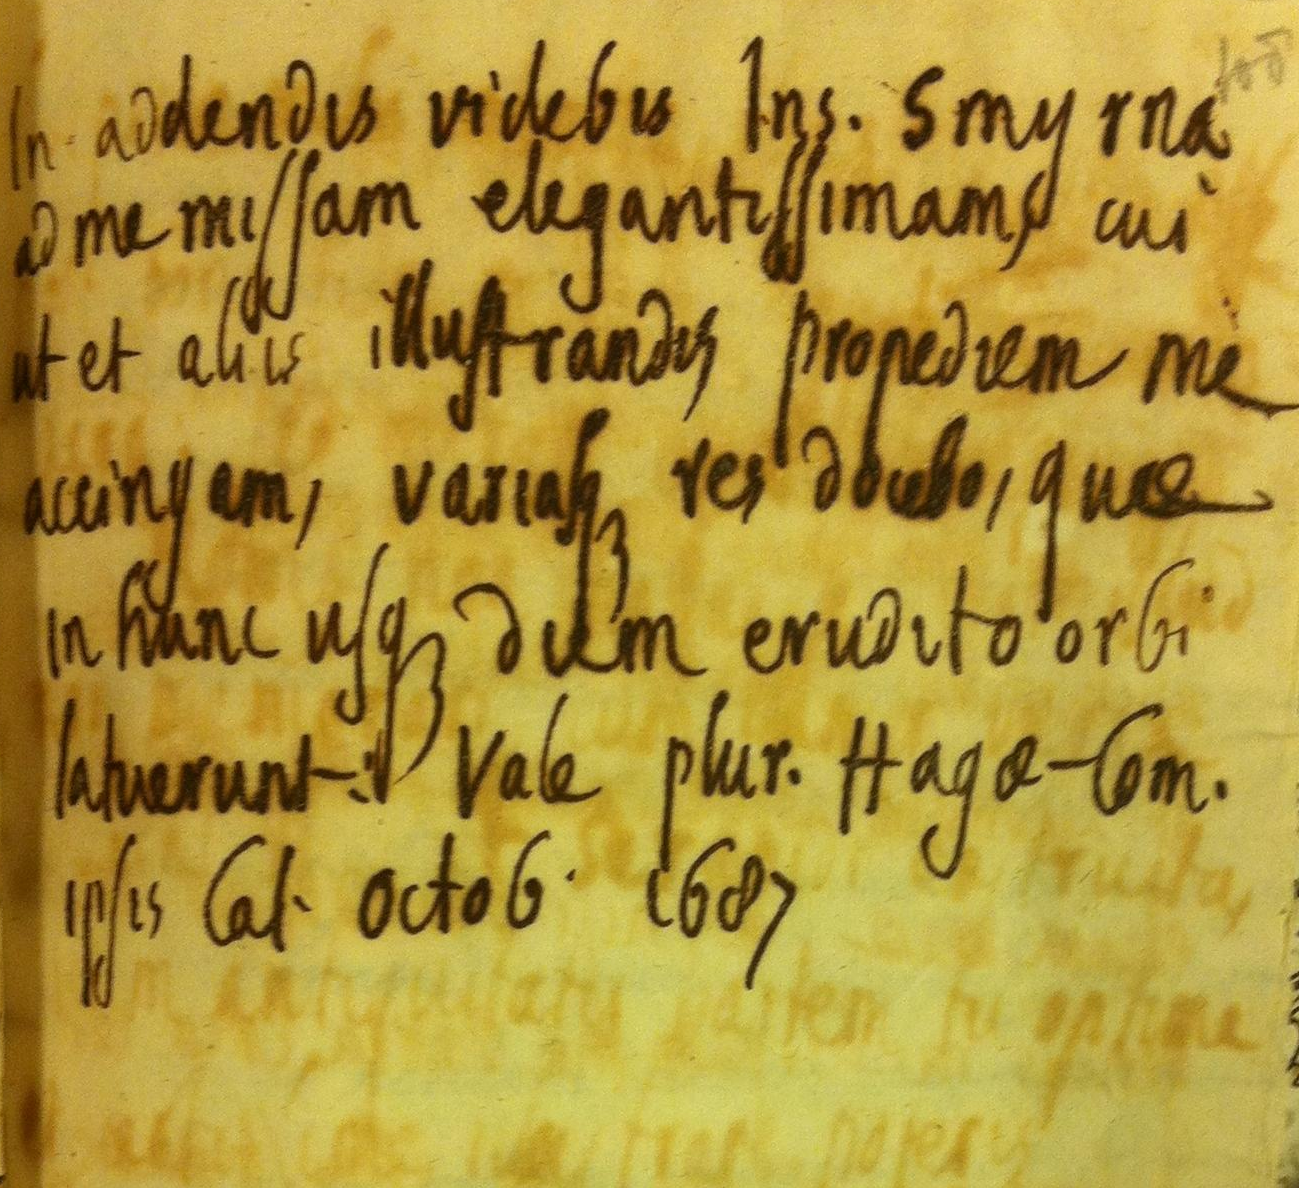 In addendis videbis Ins. Smyrna
ad me missam elegantissimam, cui
ut et aliis illustrandis propediem me
accingam, variasq; res docebo, quae
in hunc usq; diem erudito orbi
latuerunt. Vale plur. Hagae-Com.
ipsis Cal. Octob. 1687